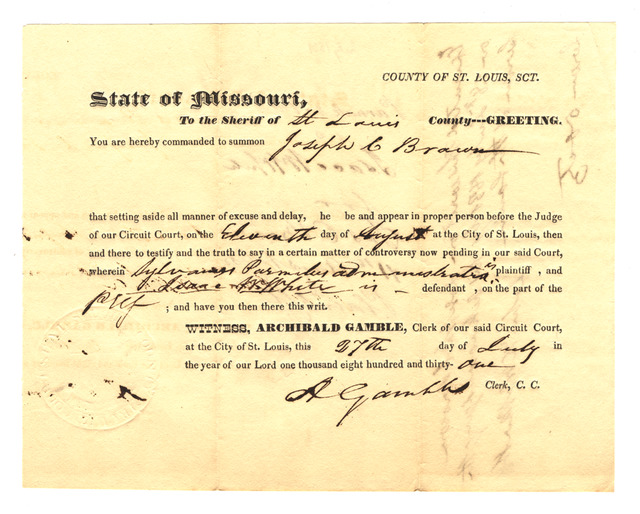 COUNTY OF ST. LOUIS, SCT.
State of Missouri,
To the Sheriff of St Louis County---GREETING.
You are hereby commanded to summon Joseph C Brown
that setting aside all manner of excuse and delay, he be and appear in proper person before the Judge
of our Circuit Court, on the Eleventh day of August at the City of St. Louis, then
and there to testify and the truth to say in a certain matter of controversy now pending in our said Court,
wherein Sylvanus administrator is plaintiff , and
Isaac White is defendant , on the part of the
Plff ; and have you then there this writ.
WITNESS, ARCHIBALD GAMBLE, Clerk of our said Circuit Court,
at the City of St. Louis, this 27th day of July in
the year of our Lord one thousand eight hundred and thirty-one
A Gamble Clerk, C. C.